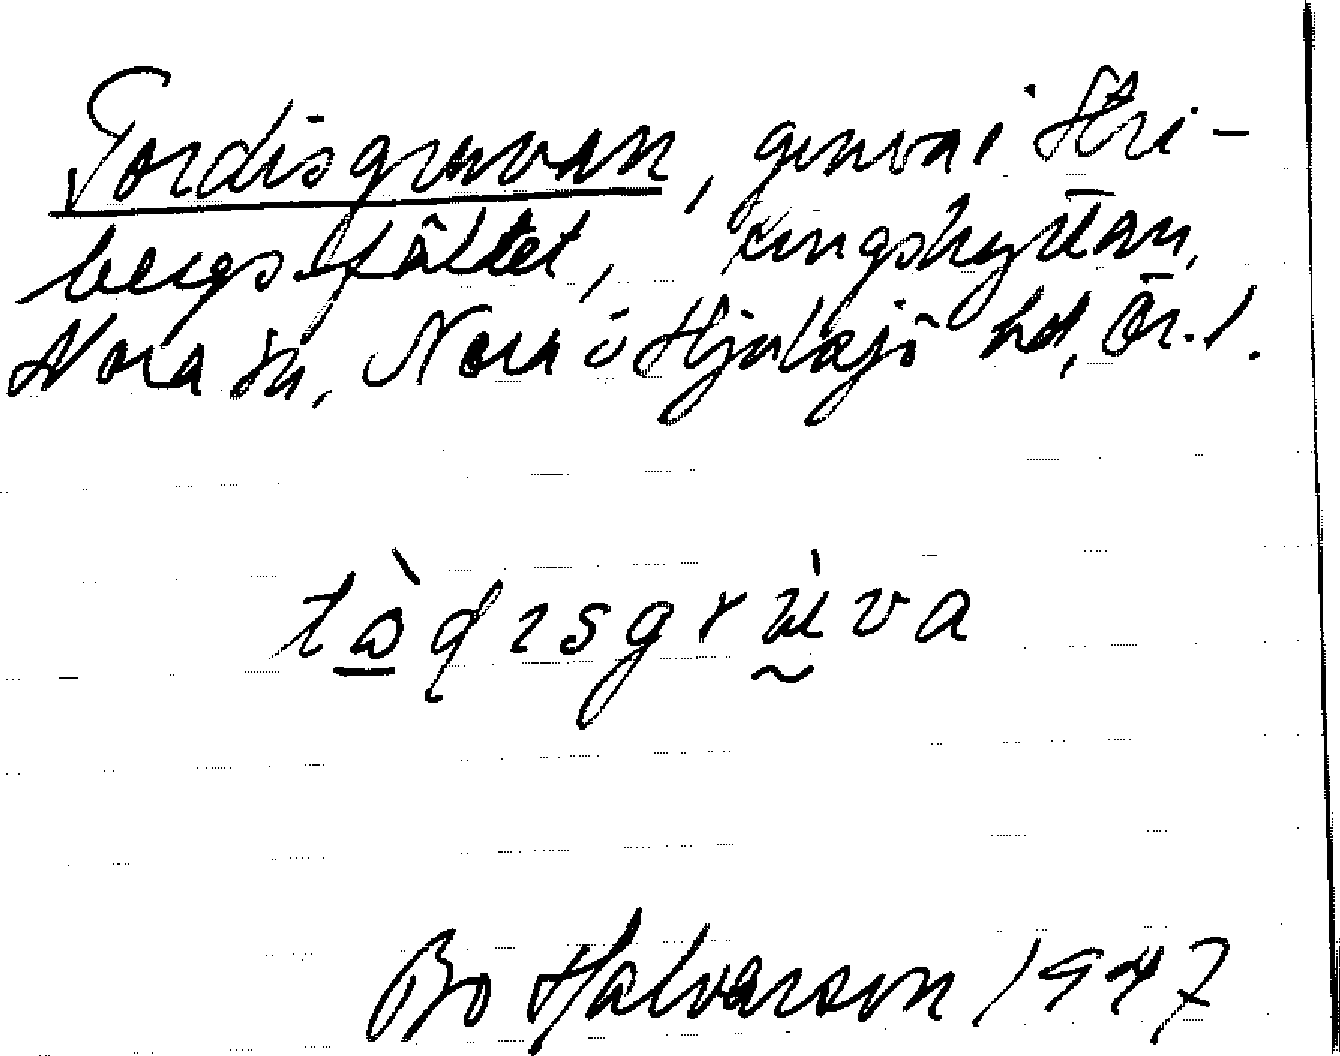 Tordisgruvan, gruva i Stri-
bergsfältet, Kungshyttan,
Nora sn, Nora o Hjulsjö hd, Ör. l.
tɷ̀ḍısgrùva
Bo Halvarson 1947